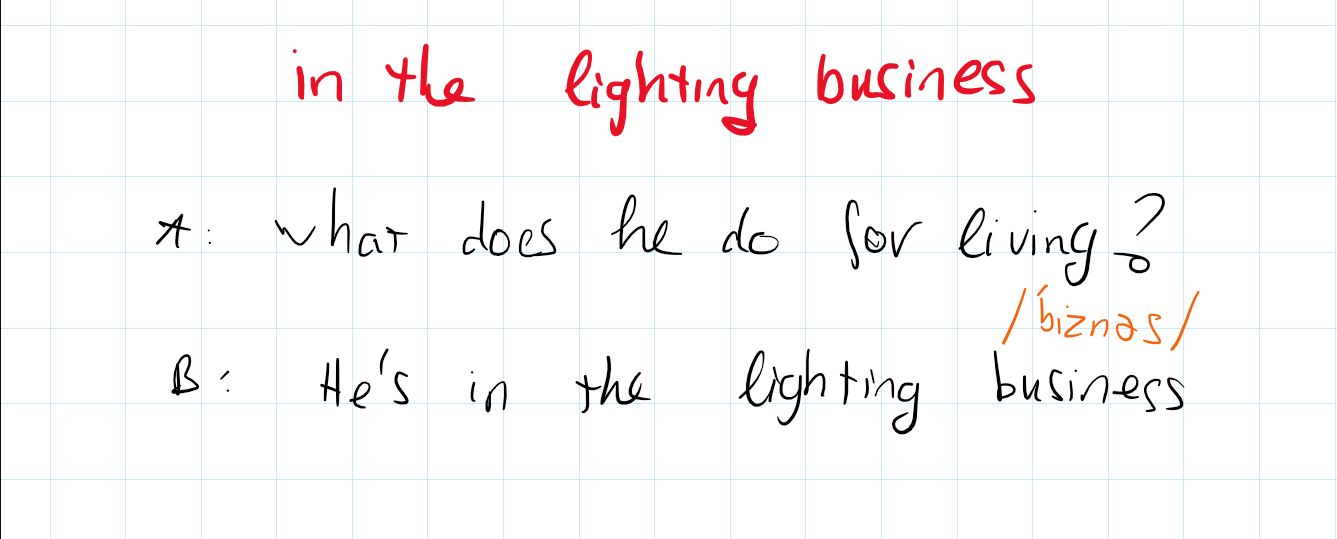 in the lighting business
A: what does he do for living?
/'biznəs/
B: He's in the lighting business